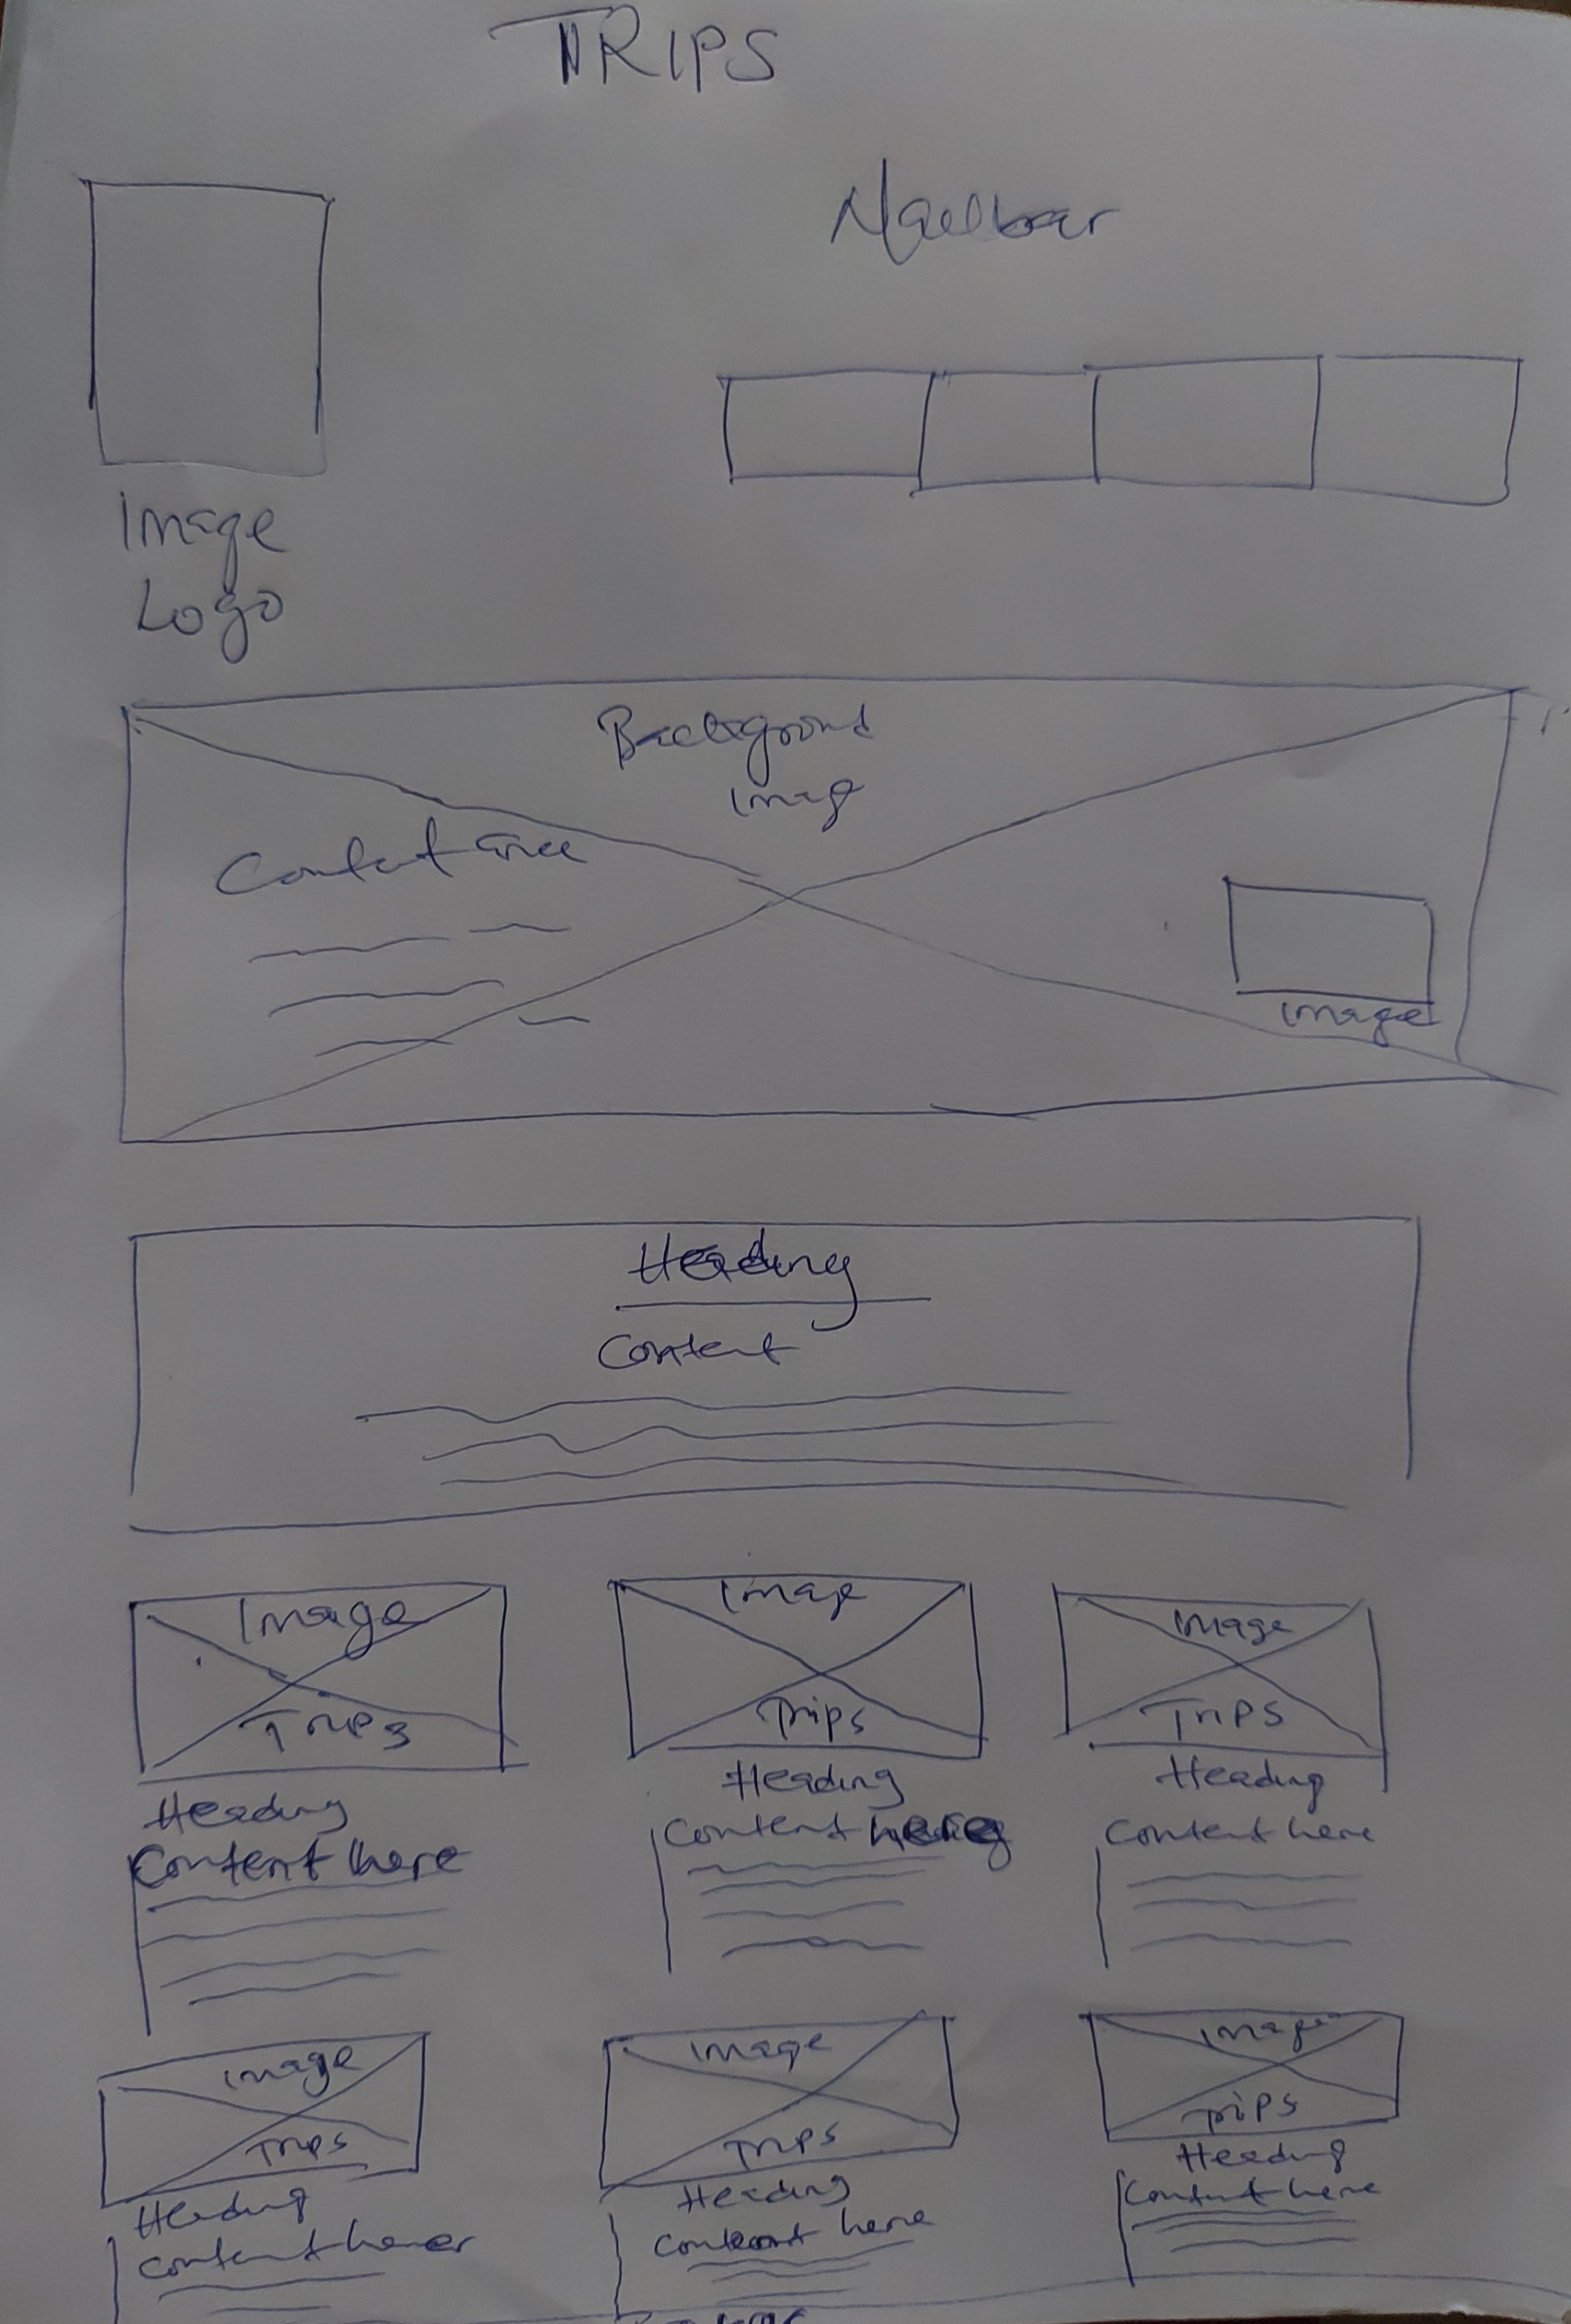 TRIPS
Navbar
Image
Logo
Background
Imag
Content area
Image
Heading
Content
Image
Trips
Heading
Content here
Image
Trips
Heading
Content here
Image
Trips
Heading
Content here
Image
Trips
Heading
Content here
Image
Trips
Heading
Content here
Image
Trips
Heading
Content here